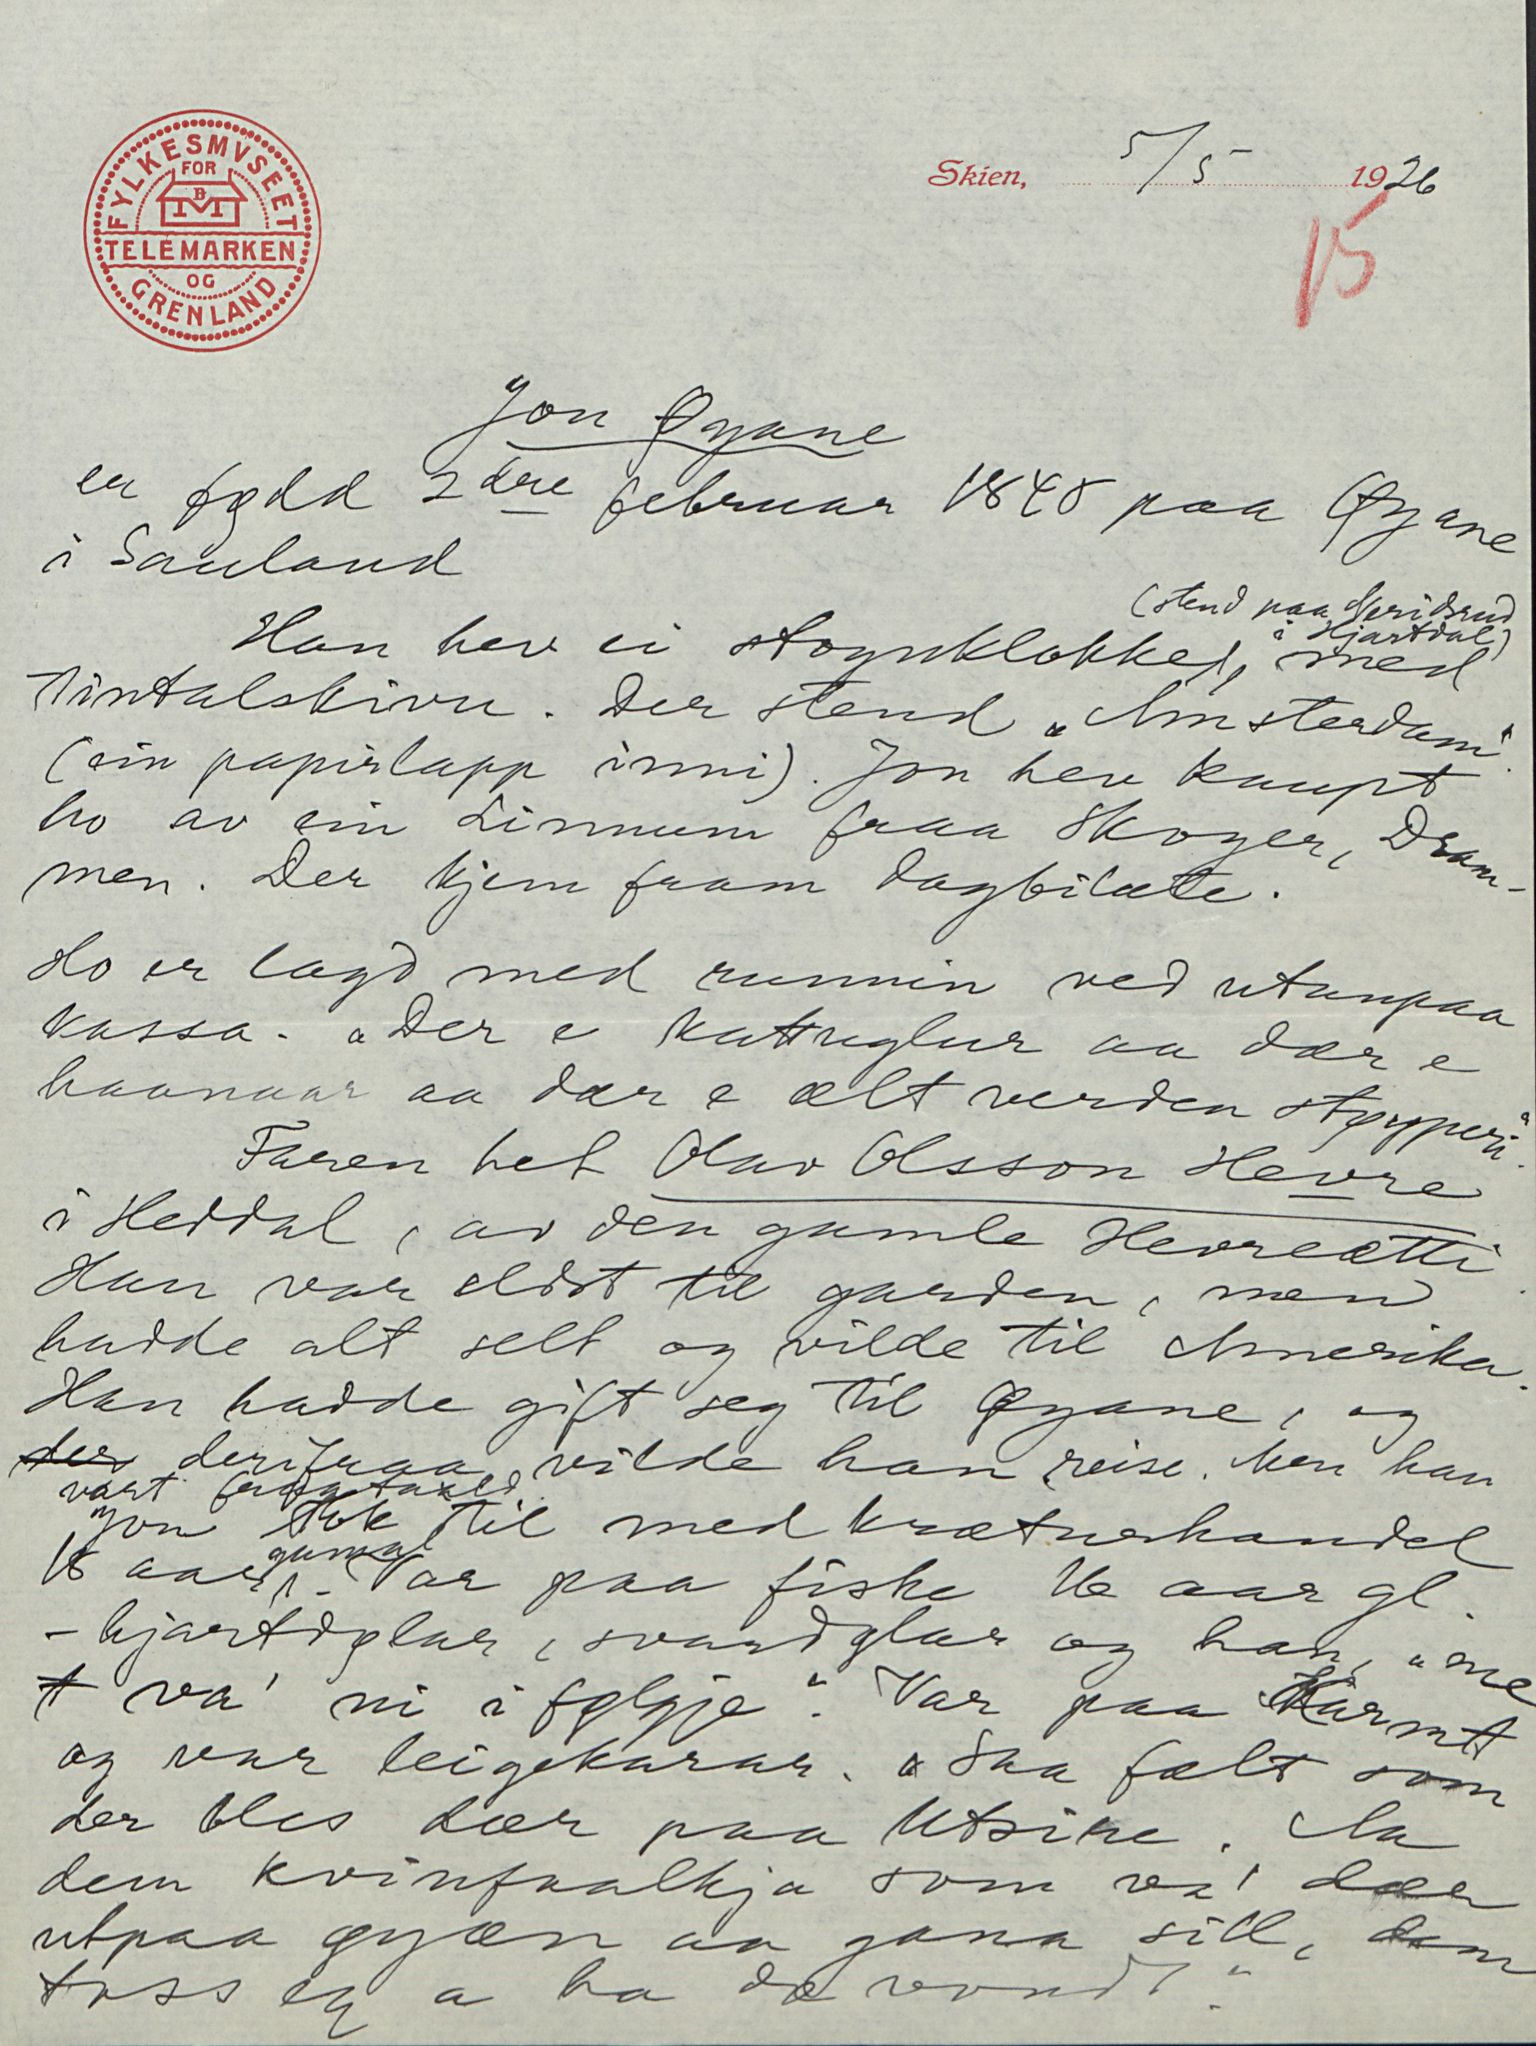 FYLKESMVSEET
FOR
B
M
TELEMARKEN
OG
GRENLAND
Skien, 5/5 1926
15
Jon Øyane
er fødd 2dre februar 1848 paa Øyane
i Sauland
(stend paa
i Hjartdal)
Han hev ei stogoklokke, med
tintalskive. Der stend "Amsterdam".
(ein papirlapp inni). Jon hev kaupt
ho av ein Linnum fraa Skoger, Dram-
men. Der kjem fram dagbilæte.
Ho er lagd med runnin ved utanpaa
kassa. "Der e kattuglur aa dær e
haanaar aa dær e ælt verden støypperi".
Faren het Olav Olsson Hevre
i Heddal, av den gamle Hevreætti.
Han var eldst til garden, men
hadde alt selt og vilde til Amerika.
Han hadde gift seg til Øyane, og
der derifraa vilde han reise. Men han
vart
Jon tok til med krøturhandel
18 aar gamal. Var paa fiske 16 aar gl.
- hjartdølar, svartdølar og han, "me
t va' ni i følgje". Var paa Karmt
og var leigekarar. "Saa fælt som
der bles dær paa Utsire. Aa
dem kvinfaalkja som va' dær
utpaa øyæn aa gana sill, dem
tøss eg a ha dæ vondt".